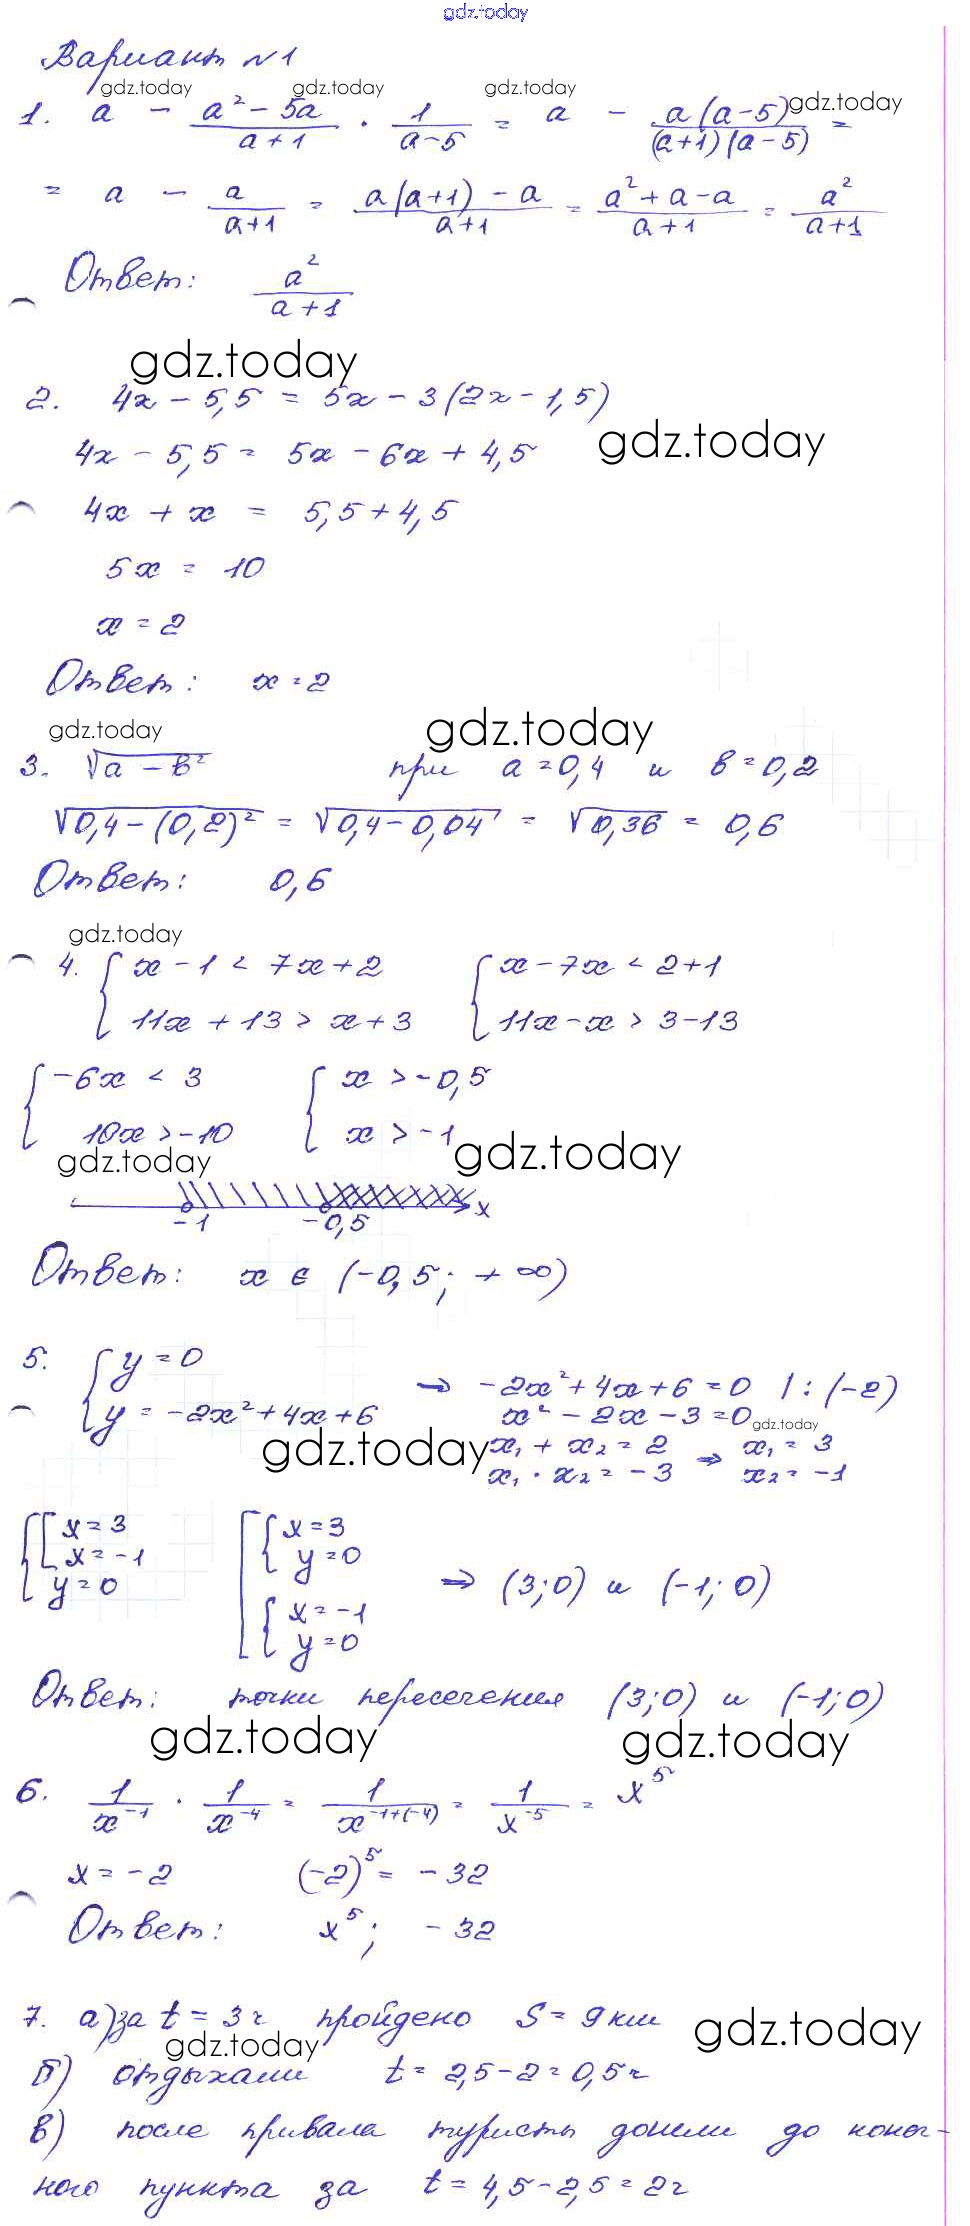 gdz.today
Вариант №1
gdz.today gdz.today gdz.today gdz.today
1. a - (a² - 5a)/(a+1) · 1/(a-5) = a - a(a-5)/((a+1)(a-5)) =
= a - a/(a+1) = (a(a+1) - a)/(a+1) = (a²+a-a)/(a+1) = a²/(a+1)
Ответ: a²/(a+1)
gdz.today
2. 4x - 5,5 = 5x - 3(2x - 1,5)
gdz.today
4x - 5,5 = 5x - 6x + 4,5
4x + x = 5,5 + 4,5
5x = 10
x = 2
Ответ: x = 2
gdz.today gdz.today
3. √(a - b²) при a = 0,4 и b = 0,2
√(0,4 - (0,2)²) = √(0,4 - 0,04) = √0,36 = 0,6
Ответ: 0,6
gdz.today
4. { x - 1 < 7x + 2 { x - 7x < 2 + 1
11x + 13 > x + 3 11x - x > 3 - 13
{ -6x < 3 { x > -0,5
10x > -10 x > -1
gdz.today gdz.today
-1 -0,5 x
Ответ: x ∈ (-0,5; +∞)
5. { y = 0
y = -2x² + 4x + 6 ⇒ -2x² + 4x + 6 = 0 | : (-2)
x² - 2x - 3 = 0
gdz.today gdz.today
x₁ + x₂ = 2 ⇒ x₁ = 3
x₁ · x₂ = -3 x₂ = -1
{ [ x = 3 [ { x = 3
x = -1 y = 0
y = 0 { x = -1
y = 0
⇒ (3; 0) и (-1; 0)
Ответ: точки пересечения (3; 0) и (-1; 0)
gdz.today gdz.today
6. 1/x⁻¹ · 1/x⁻⁴ = 1/x⁻¹⁺⁽⁻⁴⁾ = 1/x⁻⁵ = x⁵
x = -2 (-2)⁵ = -32
Ответ: x⁵; -32
7. а) за t = 3ч пройдено S = 9 км
gdz.today gdz.today
б) отдыхали t = 2,5 - 2 = 0,5ч
в) после привала туристы дошли до конеч-
ного пункта за t = 4,5 - 2,5 = 2ч